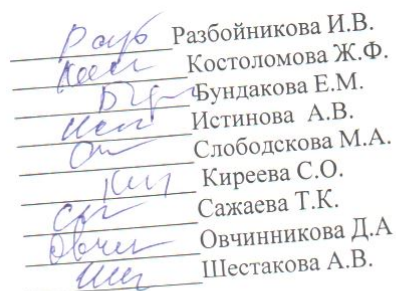 Разбойникова И.В.
Костоломова Ж.Ф.
Бундакова Е.М.
Истинова А.В.
Слободскова М.А.
Киреева С.О.
Сажаева Т.К.
Овчинникова Д.А
Шестакова А.В.